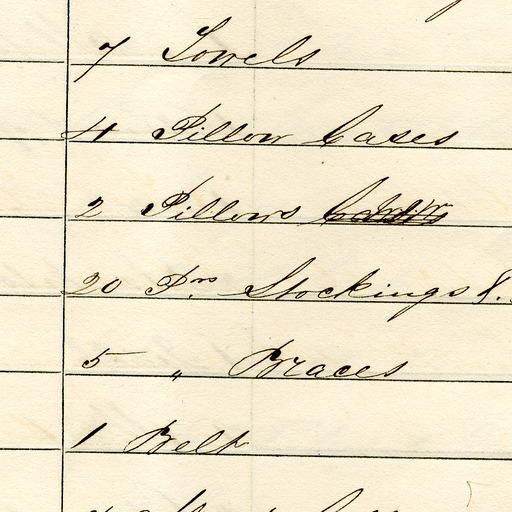 7 Towels
4 Pillow Cases
2 Pillows
20 Prs. Stockings &.
5 " Braces
1 Belt